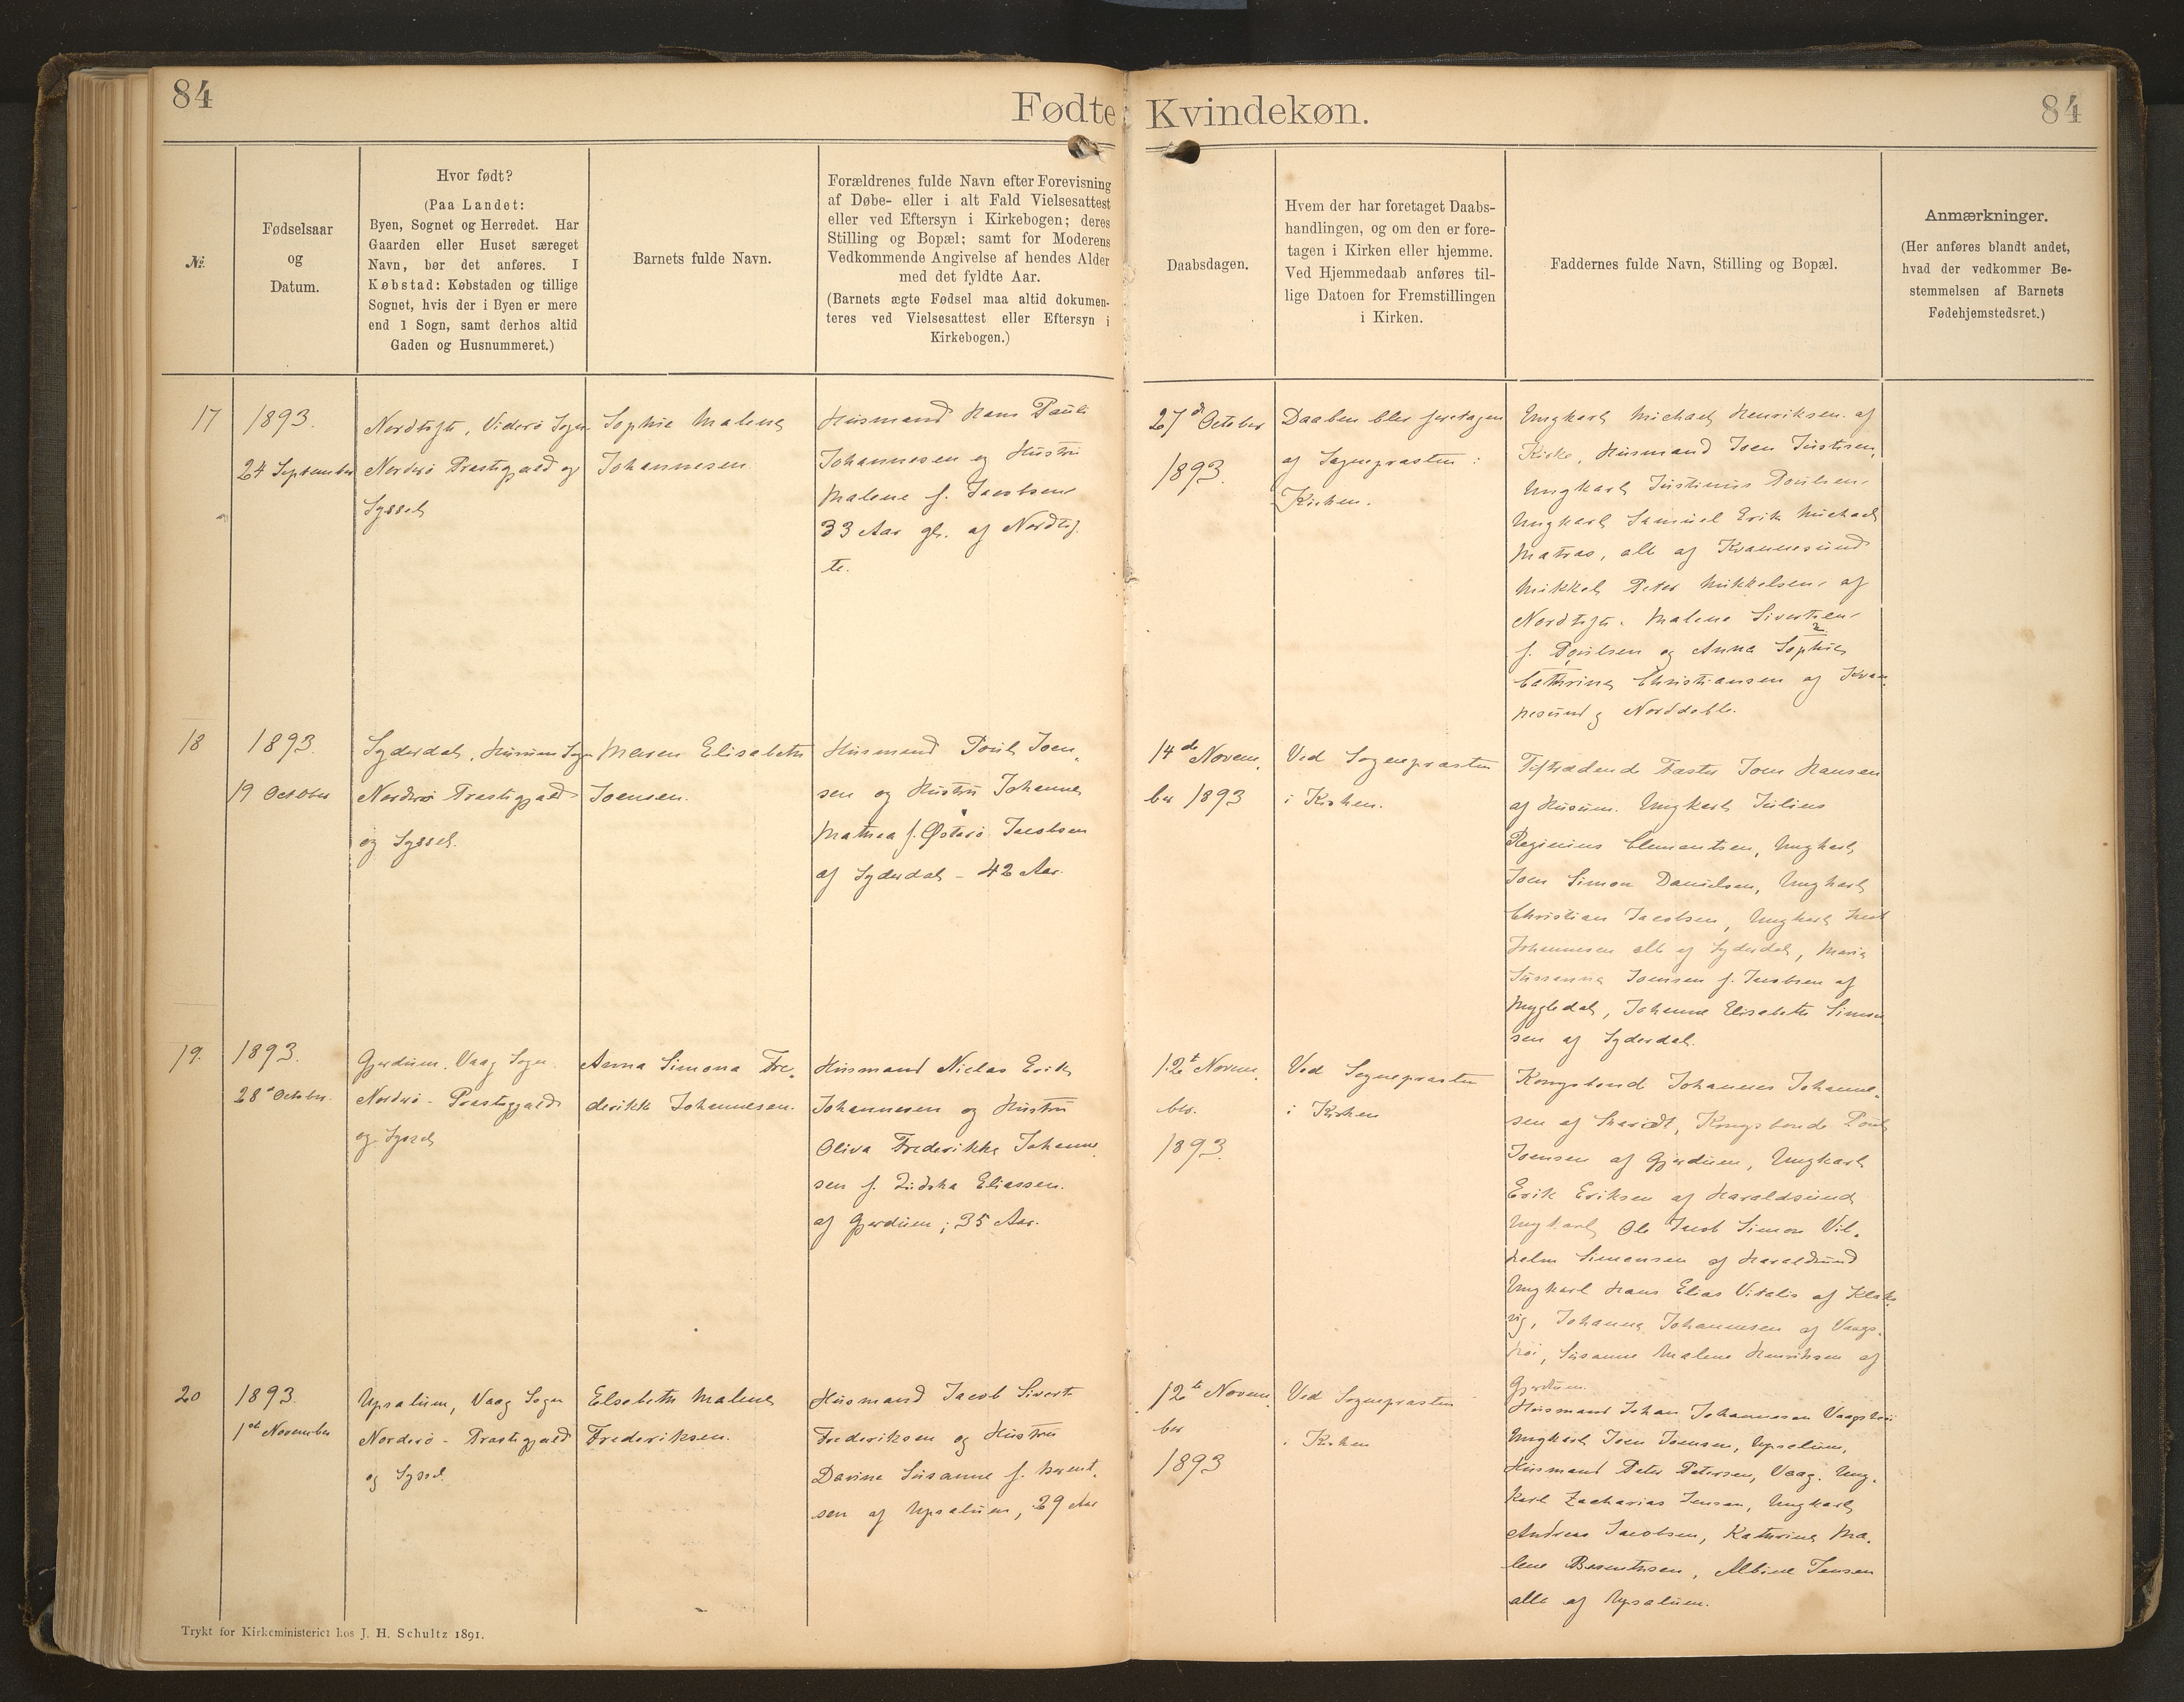 84
Fødte
Kvindekøn.
84
№
Fødselsaar
og
Datum.
Hvor født?
(Paa Landet:
Byen, Sognet og Herredet. Har
Gaarden eller Huset særeget
Navn, bør det anføres. I
Købstad: Købstaden og tillige
Sognet, hvis der i Byen er mere
end 1 Sogn, samt derhos altid
Gaden og Husnummeret.)
Barnets fulde Navn.
Forældrenes fulde Navn efter Forevisning
af Døbe- eller i alt Fald Vielsesattest
eller ved Eftersyn i Kirkebogen; deres
Stilling og Bopæl; samt for Moderens
Vedkommende Angivelse af hendes Alder
med det fyldte Aar.
(Barnets ægte Fødsel maa altid dokumen-
teres ved Vielsesattest eller Eftersyn i
Kirkebogen.)
Daabsdagen.
Hvem der har foretaget Daabs-
handlingen, og om den er fore-
tagen i Kirken eller hjemme.
Ved Hjemmedaab anføres til-
lige Datoen for Fremstillingen
i Kirken.
Faddernes fulde Navn, Stilling og Bopæl.
Anmærkninger.
(Her anføres blandt andet,
hvad der vedkommer Be-
stemmelsen af Barnets
Fødehjemstedsret.)
17
1893.
24 September
Nordtofte, Viderø Sogn
Norderø Præstegjæld og
Syssel
Sophie Malene
Johannesen
Husmand Hans Pauli
Johannesen og Hustru
Malene f. Jacobsen
33 Aar gl. af Nordtof
te.
27d October
1893.
Daaben blev foretagen
af Sognepræsten i
Kirken.
Ungkarl Michael Henriksen af
Kirke, Husmand Joen Justisen,
Ungkarl Justinus Poulsen,
Ungkarl Samuel Erik Michael
Matras, alle af Kvannesund
Mikkel Peter Mikkelsen, af
Nordtofte. Malene Sivertsen
f. Poulsen og Anna Sophie
Cathrine Christiansen af Kvan
nesund og Norddeble.
18
1893.
19 October
Syderdal, Husum Sogn
Norderø Præstegjæld
og Syssel.
Maren Elisabeth
Joensen.
Husmand Poul Joen,
sen og Hustru Johanne
Mathea f. Østerø Jacobsen
af Syderdal - 42 Aar.
14de Novem,
ber 1893
Ved Sognepræsten
i Kirken.
Tiftrædende Fæster Joen Hansen
af Husum. Ungkarl Julius
Reginius Clementsen, Ungkarl
Joen Simon Danielsen, Ungkarl
Christian Jacobsen, Ungkarl
Johannesen alle af Syderdal, Maria
Sussanna Joensen f. Jacobsen af
Mygledal, Johanne Elisabeth Simon
sen af Syderdal.
19.
1893.
28 October.
Gjerdum, Vaag Sogn
Norderø - Præstegjæld
og Syssel
Anna Simona Fre,
derikke Johannesen.
Husmand Niclas Erik
Johannesen og Hustru
Oliva Frederikke Johanne,
sen f. Eliassen.
af Gjerdum; 35 Aar.
12t Novem,
ber.
1893.
Ved Sognepræsten
i Kirken
Kongsbond Johannes Johanne,
sen af Skaridt, Kongsbonde Poul
Joensen af Gjerdum, Ungkarl
Erik Eriksen af Haraldsund
Ungkarl Ole Jacob Simon Vil,
helm Simonsen af Haraldsund
Ungkarl Hans Elias Vitalis af Klaks
vig, Johanna Johannesen af Vaags,
høi, Susanne Malene Henriksen af
Gjerdum.
20
1893.
1st November
Upsalum, Vaag Sogn
Norderø - Præstegjæld
og Syssel
Elsebeth Malene
Frederiksen.
Husmand Jacob Sivert
Frederiksen og Hustru
Davine Susanne f. Berent,
sen af Upsalum, 29 Aar
12te Novem
ber
1893
Ved Sognepræsten
i Kirken
Husmand Johan Johannesen Vaagshøi
Ungkarl Joen Joensen, Upsalum,
Husmand Peter Petersen, Vaag. Ung,
karl Zacharias Jensen, Ungkarl
Andreas Jacobsen, Kathrine Ma,
lene Berenthsen, Albine Jensen
alle af Upsalum.
Trykt for Kirkeministeriet hos J. H. Schultz 1891.